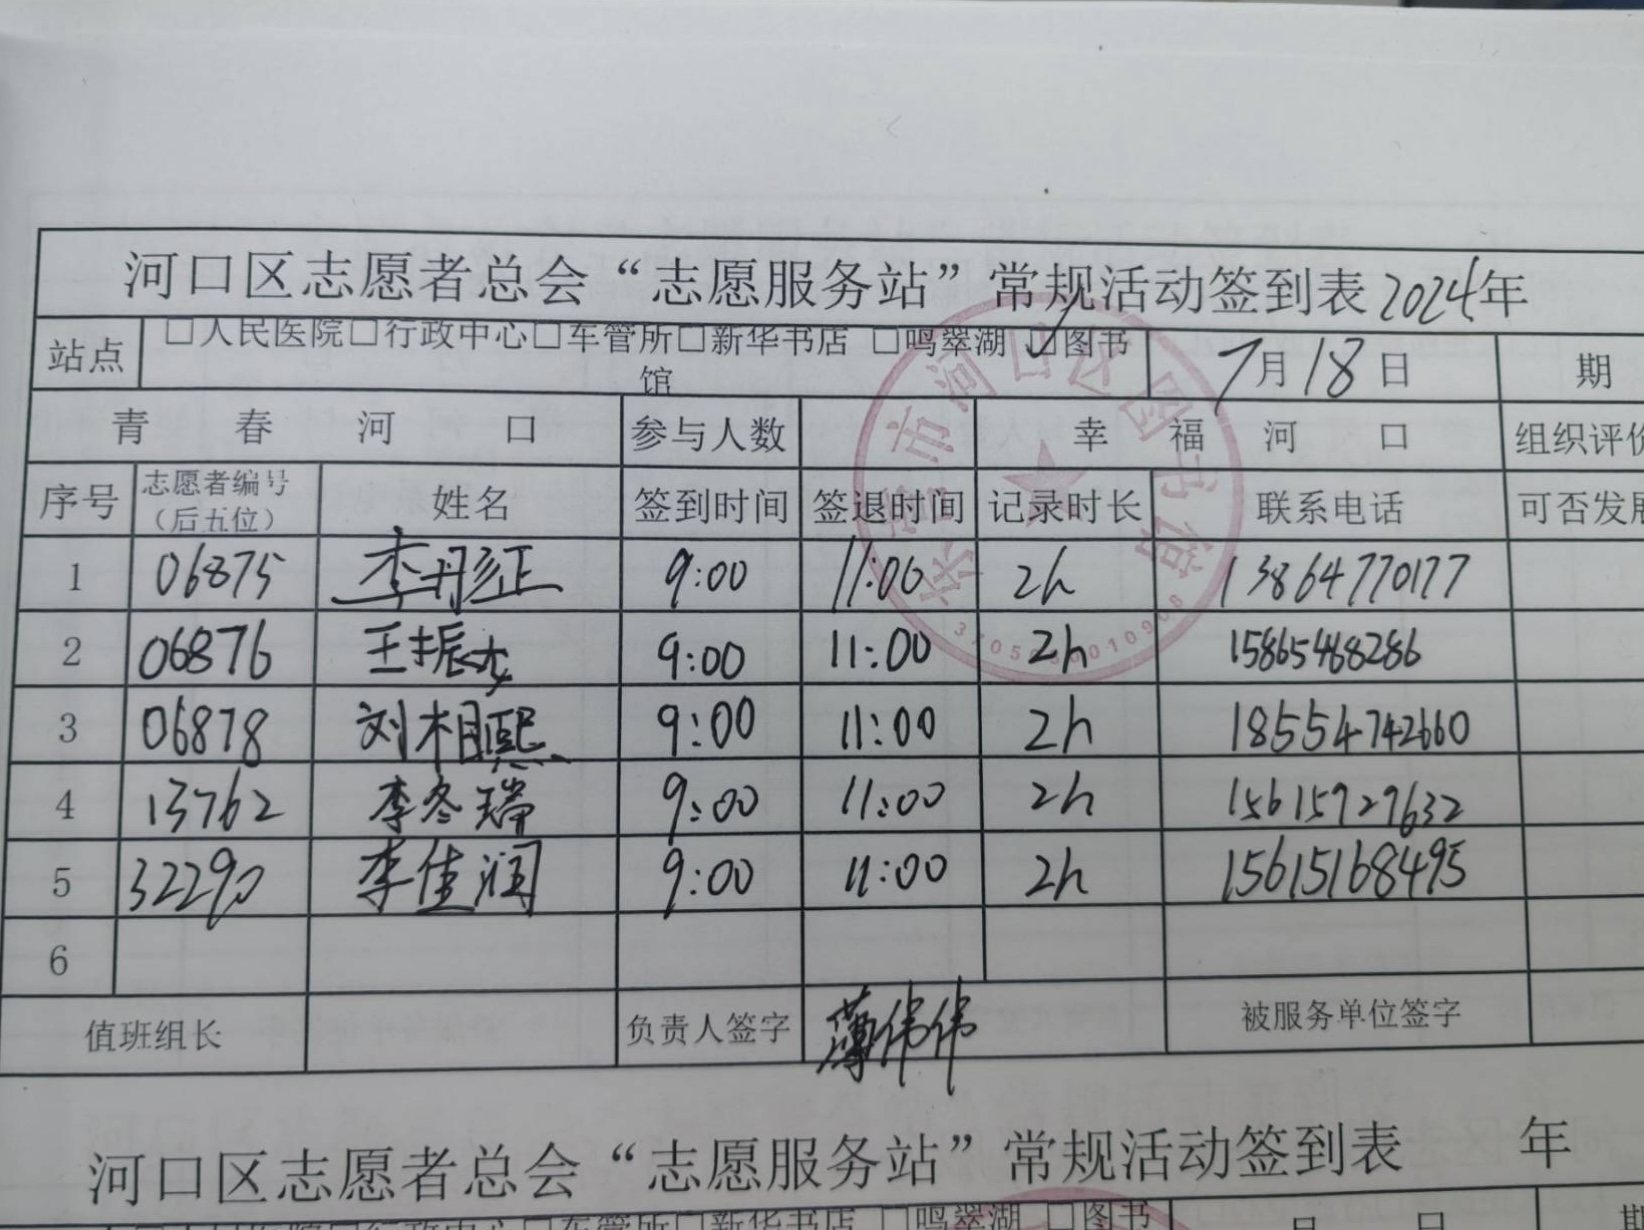 河口区志愿者总会“志愿服务站”常规活动签到表2024年
站点 □人民医院□行政中心□车管所□新华书店 □鸣翠湖 ☑图书馆 7月18日 期
青 春 河 口 参与人数 幸 福 河 口 组织评价
序号 志愿者编号（后五位） 姓名 签到时间 签退时间 记录时长 联系电话 可否发展
1 06875 李彤正 9:00 11:00 2h 13864770177
2 06876 王振 9:00 11:00 2h 15865468286
3 06878 刘相熙 9:00 11:00 2h 18554742660
4 13762 李冬瑞 9:00 11:00 2h 15615929632
5 32290 李佳润 9:00 11:00 2h 15615168495
6
值班组长 负责人签字 薄伟伟 被服务单位签字
河口区图书馆
河口区志愿者总会“志愿服务站”常规活动签到表 年
□人民医院□行政中心□车管所□新华书店 □鸣翠湖 □图书 月 日 期